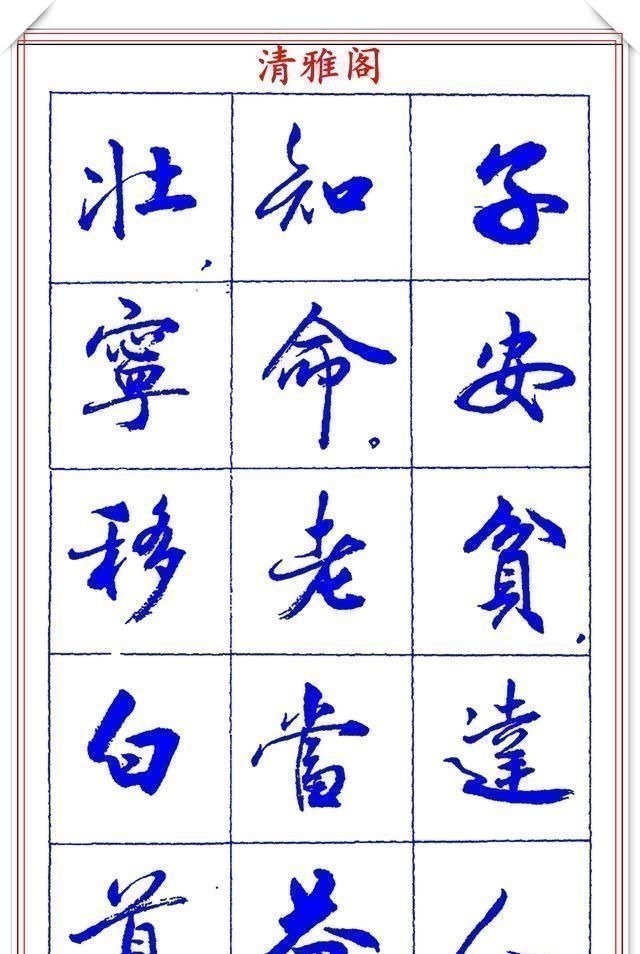 清雅阁
子安貧，達人
知命。老當益
壮，寧移白首